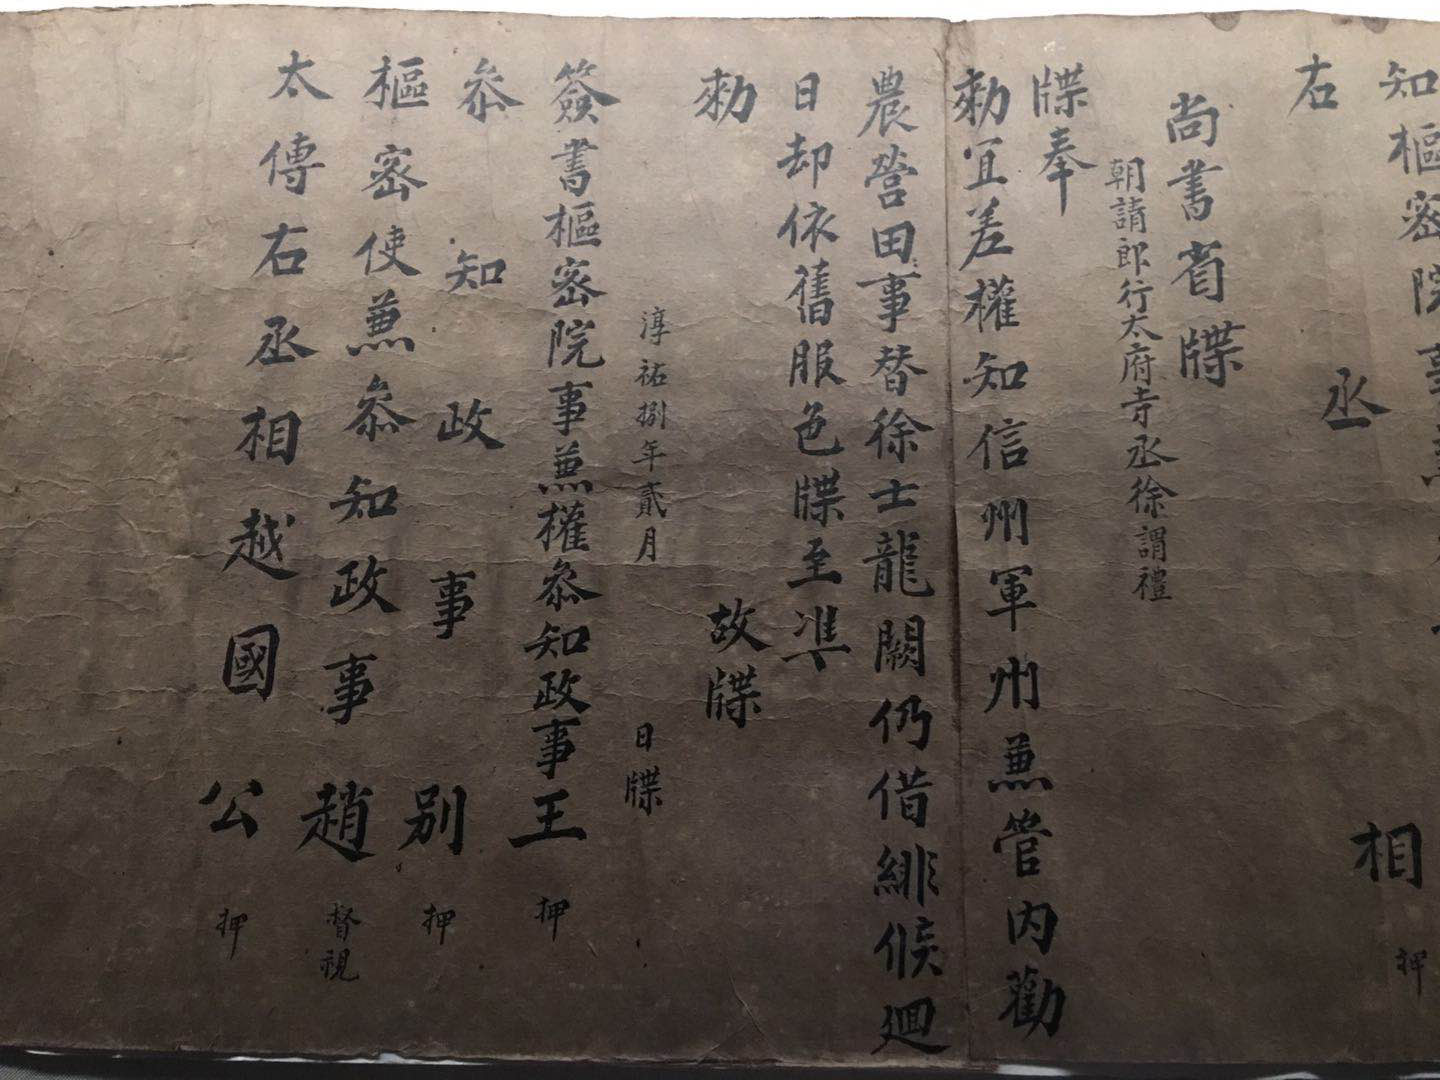 知樞密院事兼參
右丞相押
尚書省牒
朝請郎行太府寺丞徐謂禮
牒奉
勑宜差權知信州軍州兼管內勸
農營田事替徐士龍闕仍借緋候廻
日却依舊服色牒至準
勑故牒
淳祐捌年貳月日牒
簽書樞密院事兼權叅知政事王押
叅知政事别押
樞密使兼叅知政事趙督視
太傅右丞相越國公押